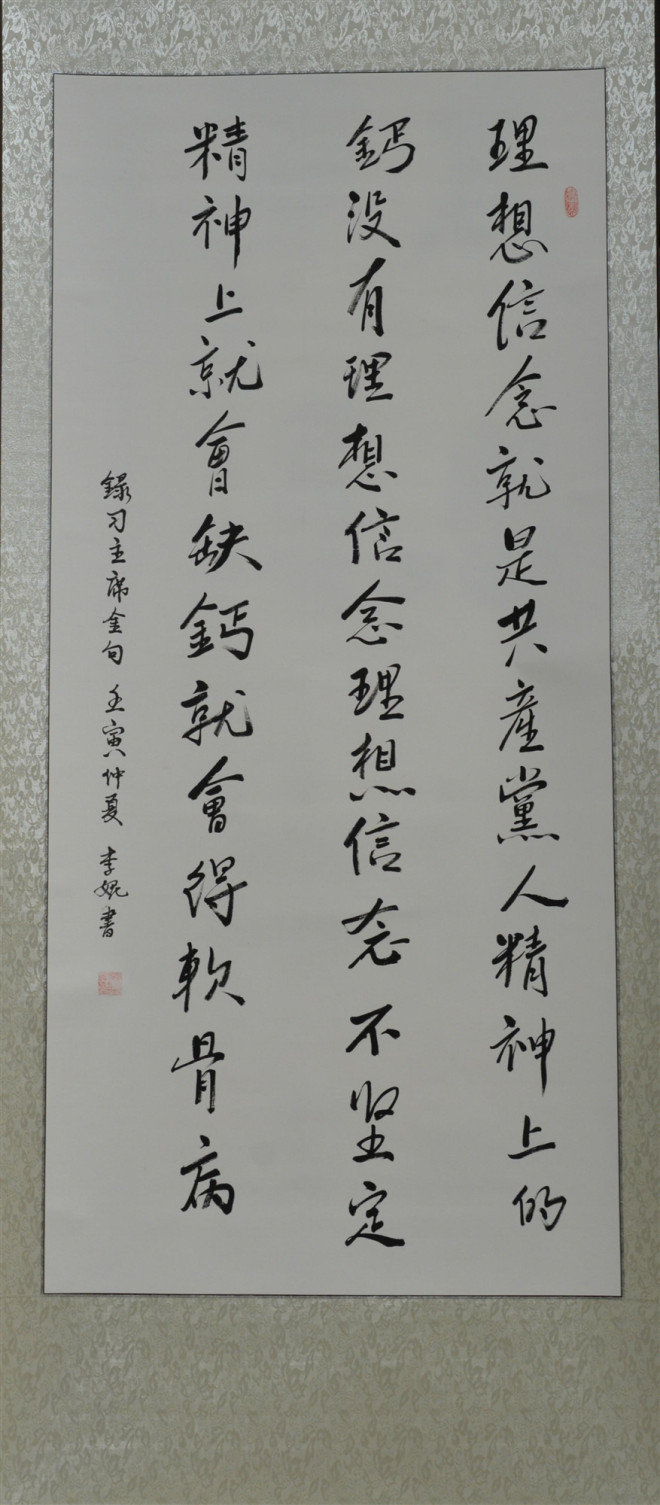 理想信念就是共產黨人精神上的
鈣没有理想信念理想信念不坚定
精神上就會缺鈣就會得軟骨病
録习主席金句 壬寅仲夏 李婉書